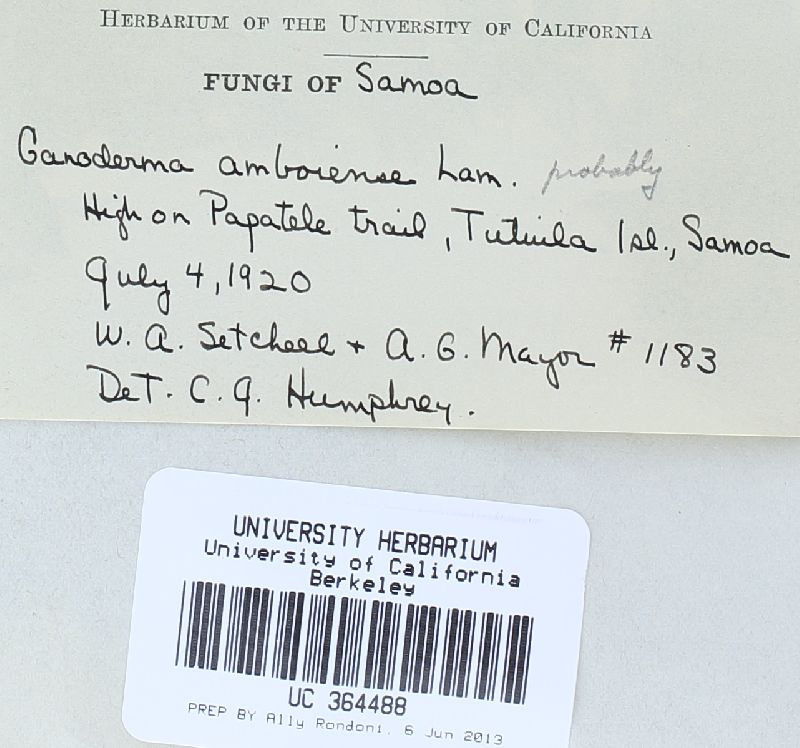 HERBARIUM OF THE UNIVERSITY OF CALIFORNIA
FUNGI OF Samoa
Ganoderma amboiense Lam. probably
High on Papatele trail, Tutuila Isl., Samoa
July 4, 1920
W. A. Setchell + A. G. Mayor # 1183
Det. C. J. Humphrey.
UNIVERSITY HERBARIUM
University of California
Berkeley
UC 364488
PREP BY Ally Rondoni, 6 Jun 2013